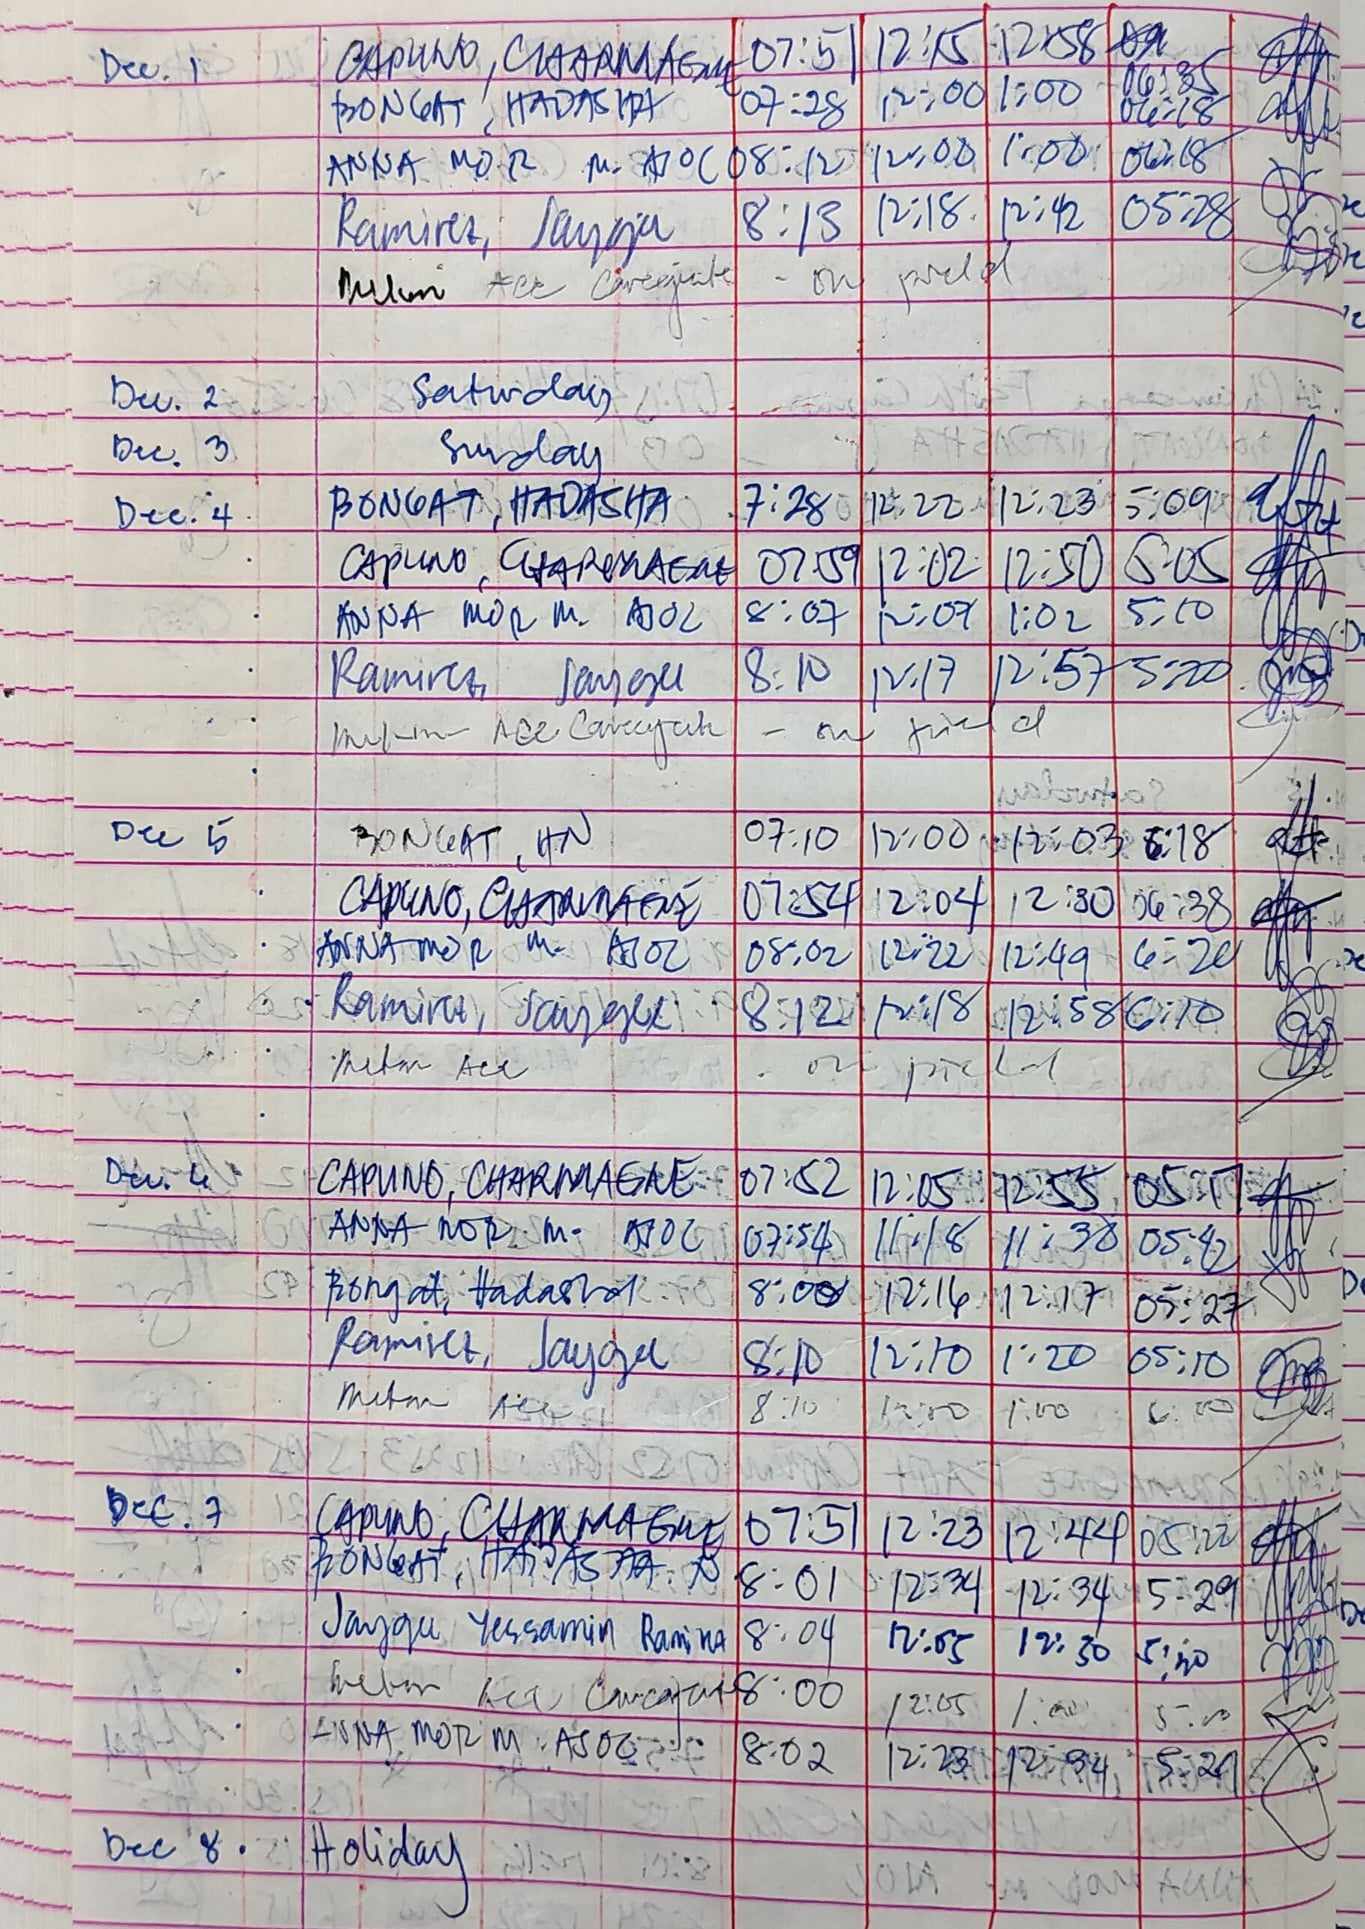 Dec. 1 CAPUNO, CHARMAGNE 07:51 12:15 12:58 06:35
BONGAT, HADASHA 07:28 12:00 1:00 06:18
ANNA MOR M. AJOC 08:12 12:00 1:00 06:18
Ramirez, Jaygee 8:13 12:18 12:42 05:28
Ace - on field
Dec. 2 Saturday
Dec. 3 Sunday
Dec. 4 BONGAT, HADASHA 7:28 12:22 12:23 5:09
CAPUNO, CHARMAGNE 07:59 12:02 12:50 5:05
ANNA MOR M. AJOC 8:07 12:07 1:02 5:10
Ramirez, Jaygee 8:10 12:17 12:57 5:20
Ace - on field
Dec 5 BONGAT, HN 07:10 12:00 12:03 6:18
CAPUNO, CHARMAGNE 07:54 12:04 12:30 06:38
ANNA MOR M. AJOC 08:02 12:22 12:49 6:20
Ramirez, Jaygee 8:12 12:18 12:58 6:10
Ace - on field
Dec. 6 CAPUNO, CHARMAGNE 07:52 12:05 12:55 05:17
ANNA MOR M. AJOC 07:54 11:18 11:30 05:42
Bongat, Hadasha 8:00 12:16 12:17 05:27
Ramirez, Jaygee 8:10 12:10 1:20 05:10
Ace 8:10 12:00 1:00 6:00
Dec. 7 CAPUNO, CHARMAGNE 07:51 12:23 12:44 05:22
BONGAT, HADASHA N 8:01 12:34 12:34 5:29
Jaygee Yessamin Ramirez 8:04 12:05 12:30 5:10
Ace 8:00 12:05 1:00 5:00
ANNA MOR M. AJOC 8:02 12:23 12:34 5:29
Dec 8. Holiday